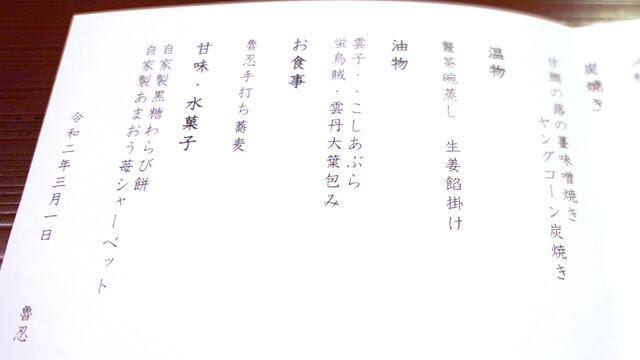 炭焼き
甘鯛の蕗の薹味噌焼き
ヤングコーン炭焼き
温物
鼈茶碗蒸し　生姜餡掛け
油物
雲子・・こしあぶら
蛍烏賊・雲丹大葉包み
お食事
魯忍手打ち蕎麦
甘味・水菓子
自家製黒糖わらび餅
自家製あまおう苺シャーベット
令和二年三月一日
魯忍